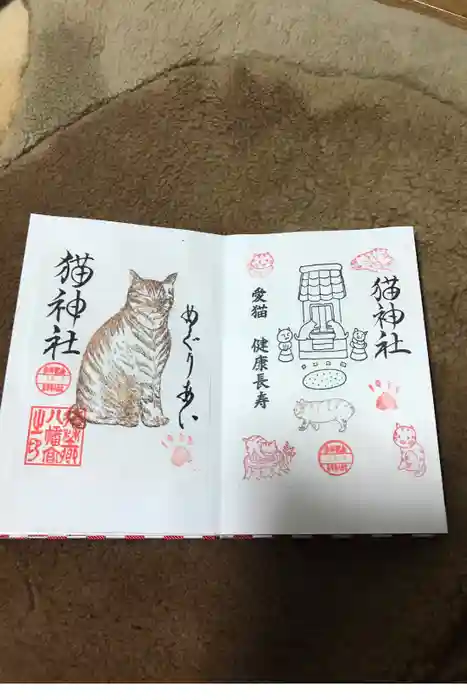 猫神社
愛猫 健康長寿
めぐりあい
猫神社
八幡宮